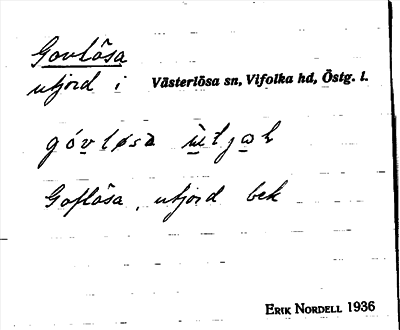 Govlösa
utjord i Västerlösa sn, Vifolka hd, Östg. l.
góvløsa ùtjoḷ
Goflösa, utjord bek
ERIK NORDELL 1936